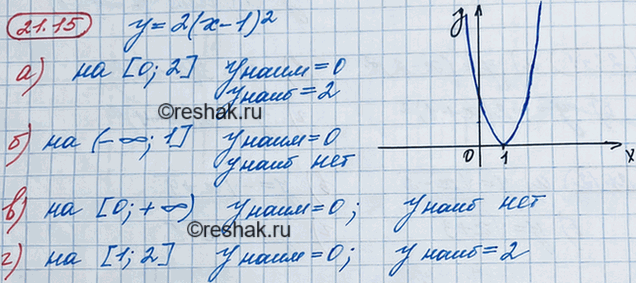 21.15 y = 2(x-1)²
а) на [0; 2] yнаим = 0
yнаиб = 2
©reshak.ru
б) на (-∞; 1] yнаим = 0
yнаиб нет
в) на [0; +∞) yнаим = 0; yнаиб нет
©reshak.ru
г) на [1; 2] yнаим = 0; yнаиб = 2
y
0 1 x